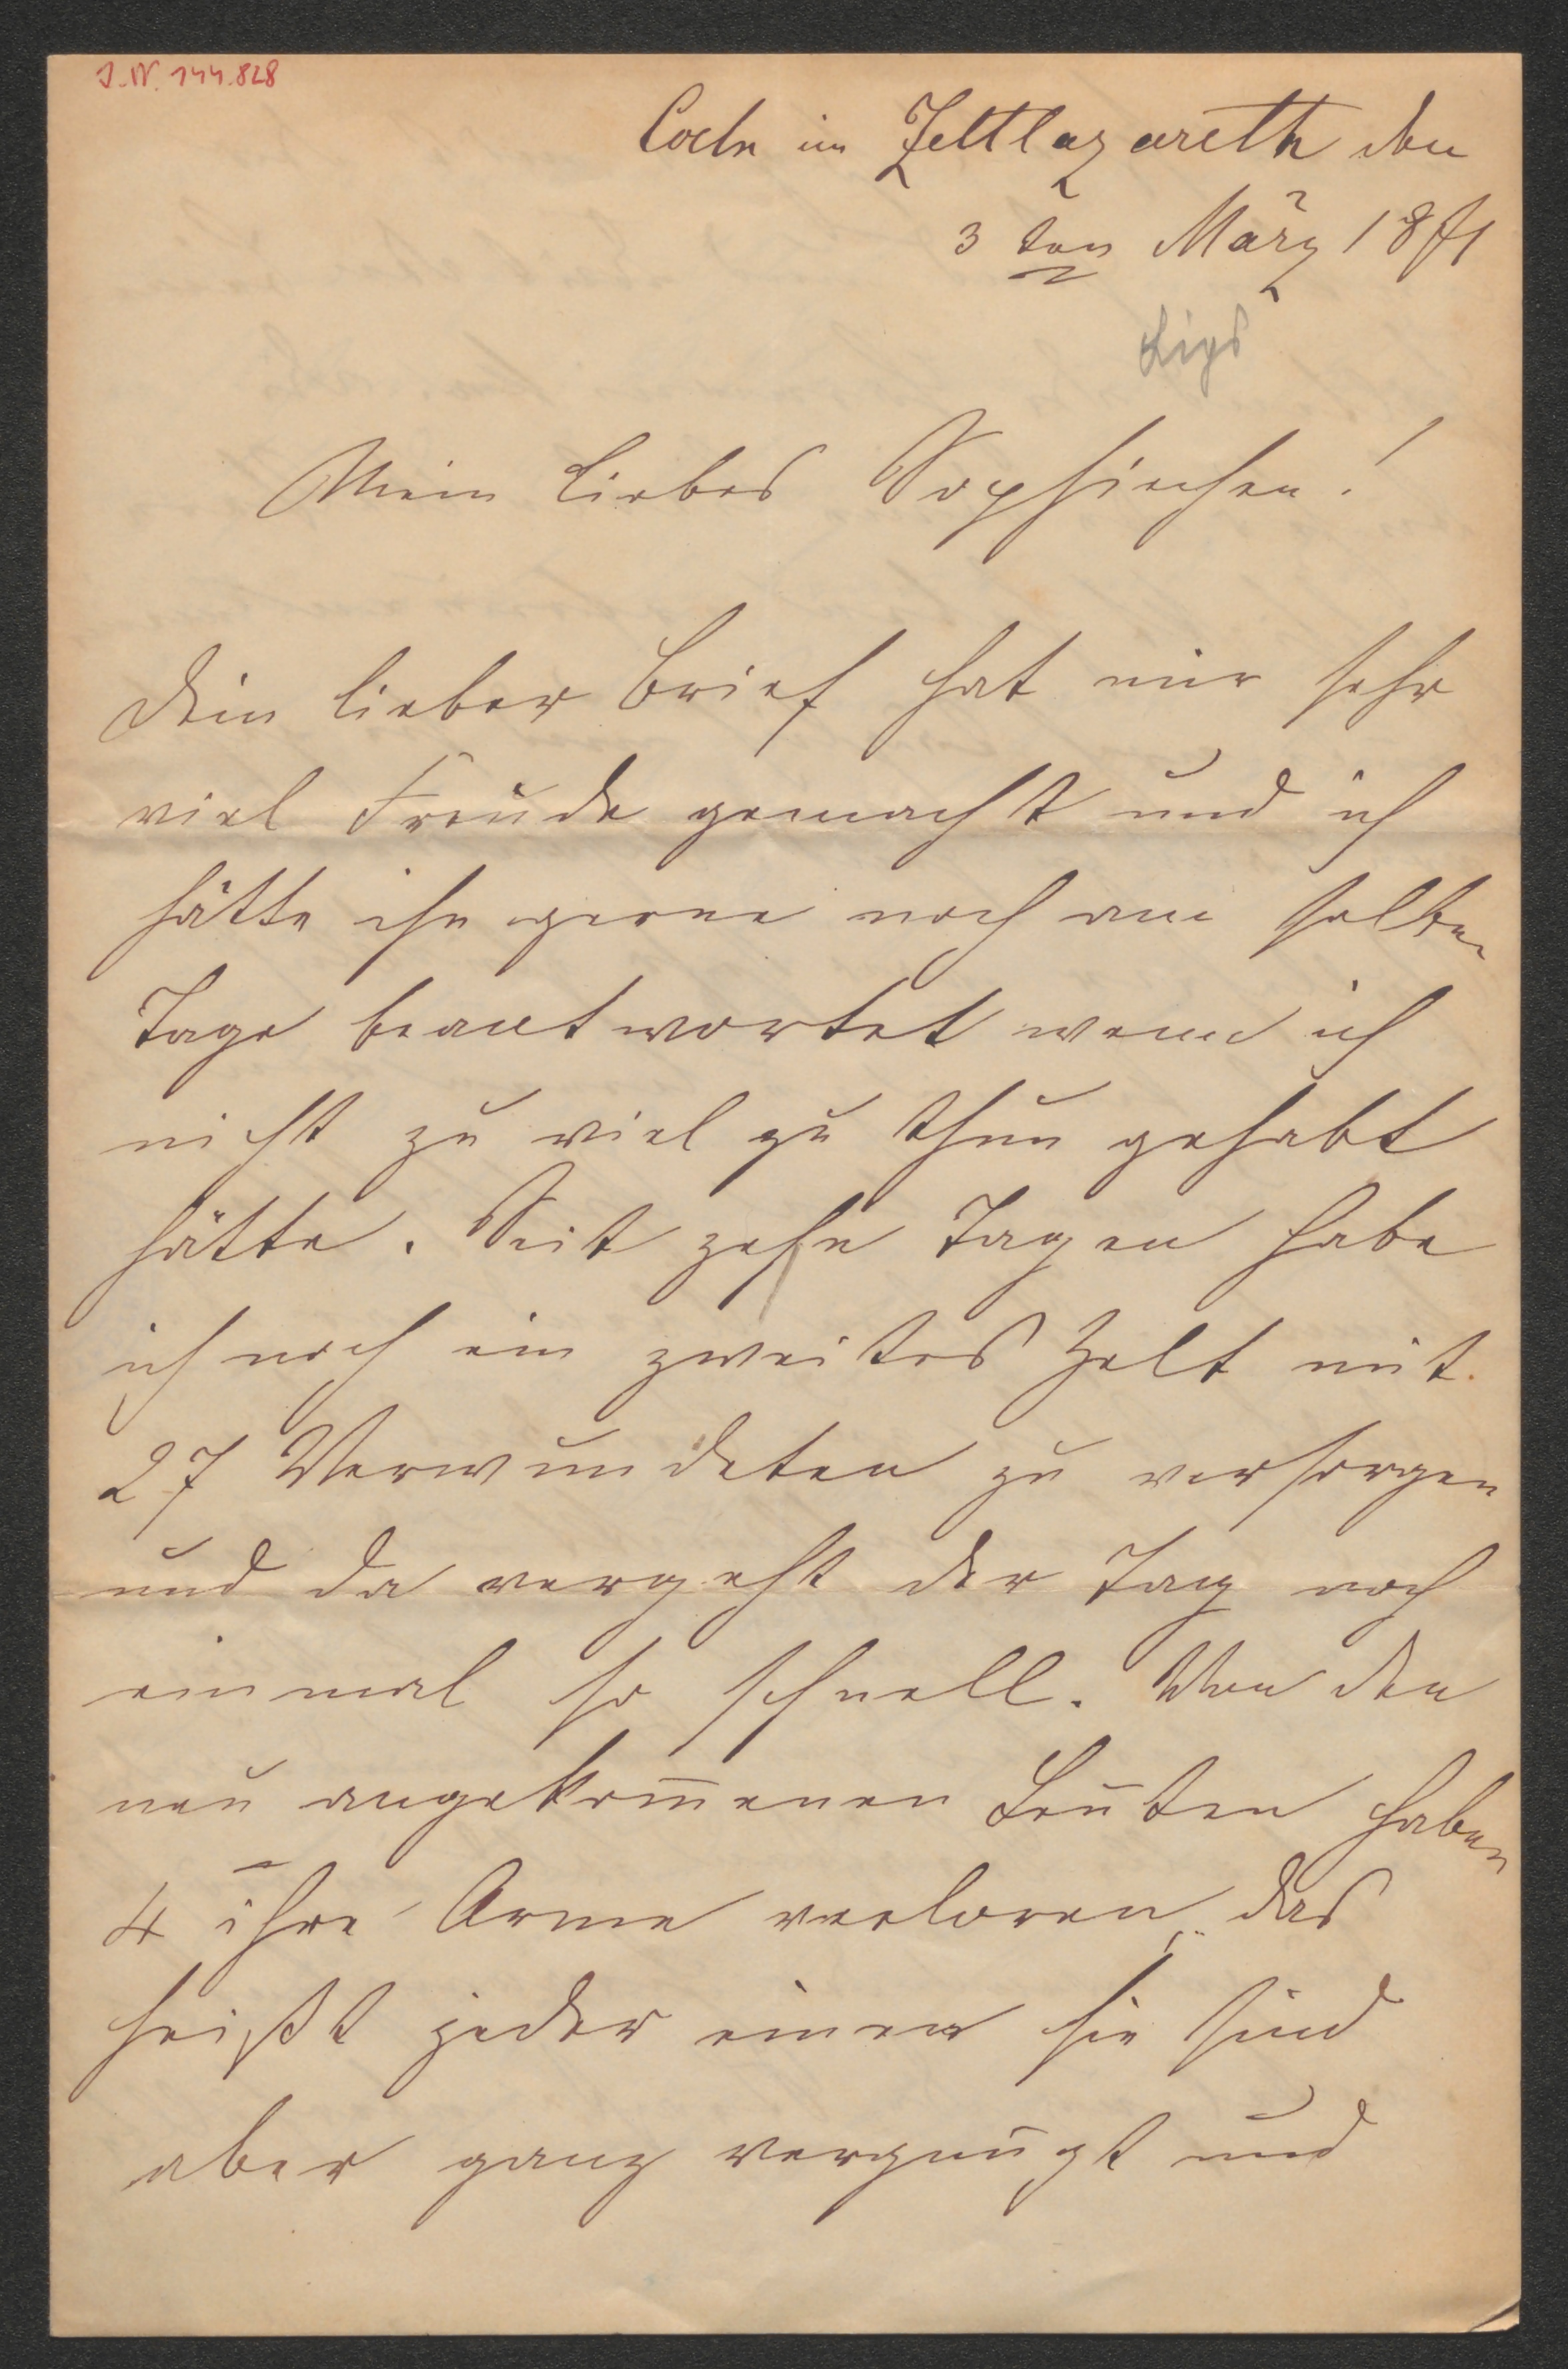 J. N. 144.828
Coeln im Zeltlazareth den
3 ten März 1871
Mein liebes Sophiechen!
Dein lieber Brief hat mir sehr
viel Freude gemacht und ich
hätte ihn gerne noch am selben
Tage beantwortet wenn ich
nicht zu viel zu thun gehabt
hätte. Seit zehn Tagen habe
ich noch ein zweites Zelt mit
27 Verwundeten zu versorgen
und da vergeht der Tag noch
einmal so schnell. Von den
neu angekom̅enen Leuten haben
4 ihre Arme verloren, das
heißt jeder einen sie sind
aber ganz vergnügt und